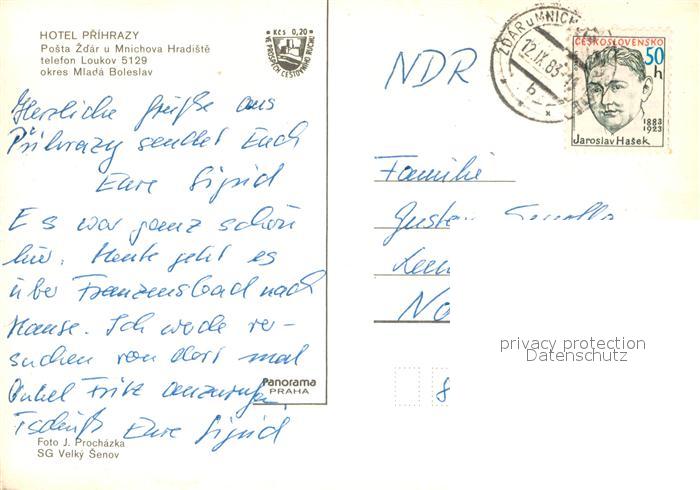 HOTEL PŘÍHRAZY
Pošta Žďár u Mnichova Hradiště
telefon Loukov 5129
okres Mladá Boleslav
Kčs 0,20
VE PROSPĚCH CESTOVNÍHO RUCHU
Herzliche Grüße aus
Příhrazy sendet Euch
Eure Sigrid
Es war ganz schön
hier. Heute geht es
über Franzensbad nach
Hause. Ich werde ver-
suchen von dort mal
Onkel Fritz anzurufen.
Tschüß Eure Sigrid
Panorama
PRAHA
Foto J. Procházka
SG Velký Šenov
NDR
ŽĎÁR u MNICH
12.IX.83
b
ČESKOSLOVENSKO
50
h
1883
1923
Jaroslav Hašek
Familie
Gustav
No
8
privacy protection
Datenschutz